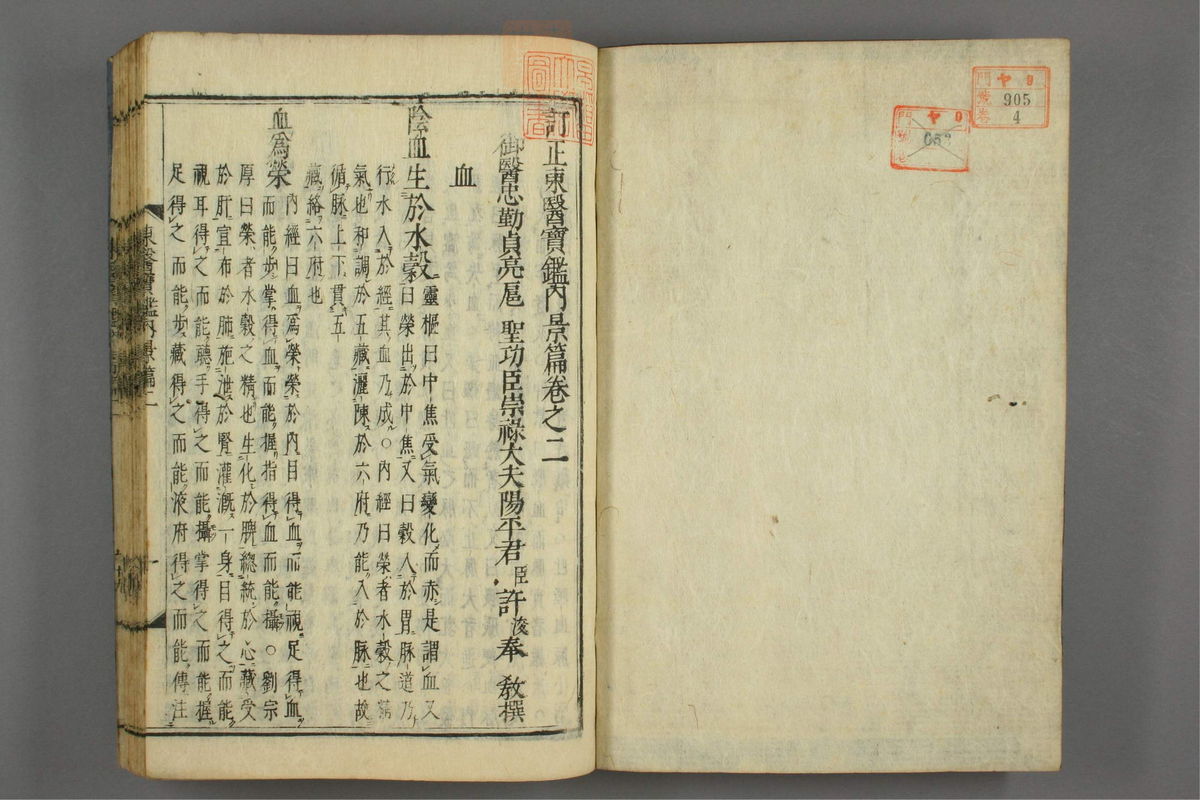 訂正東醫寶鑑內景篇卷之二
御醫忠勤貞亮扈 聖功臣崇祿大夫陽平君臣許浚奉 敎撰
血
陰血生於水穀 靈樞曰中焦受氣變化而赤是謂血又
曰榮出於中焦又曰穀入於胃脉道乃
行水入於經其血乃成○內經曰榮者水穀之精
氣也和調於五藏灑陳於六府乃能入於脉也故
循脉上下貫五
藏絡六府也
血爲榮 內經曰血爲榮榮於內目得血而能視足得血
而能步掌得血而能握指得血而能攝○劉宗
厚曰榮者水穀之精也生化於脾總統於心藏受
於肝宣布於肺施泄於腎灌漑一身目得之而能
視耳得之而能聽手得之而能攝掌得之而能握
足得之而能步藏得之而能液府得之而能傳注
東醫寶鑑內景篇二
一
門 ヤ 9
號 905
卷 4
門 ヤ 9
圖書